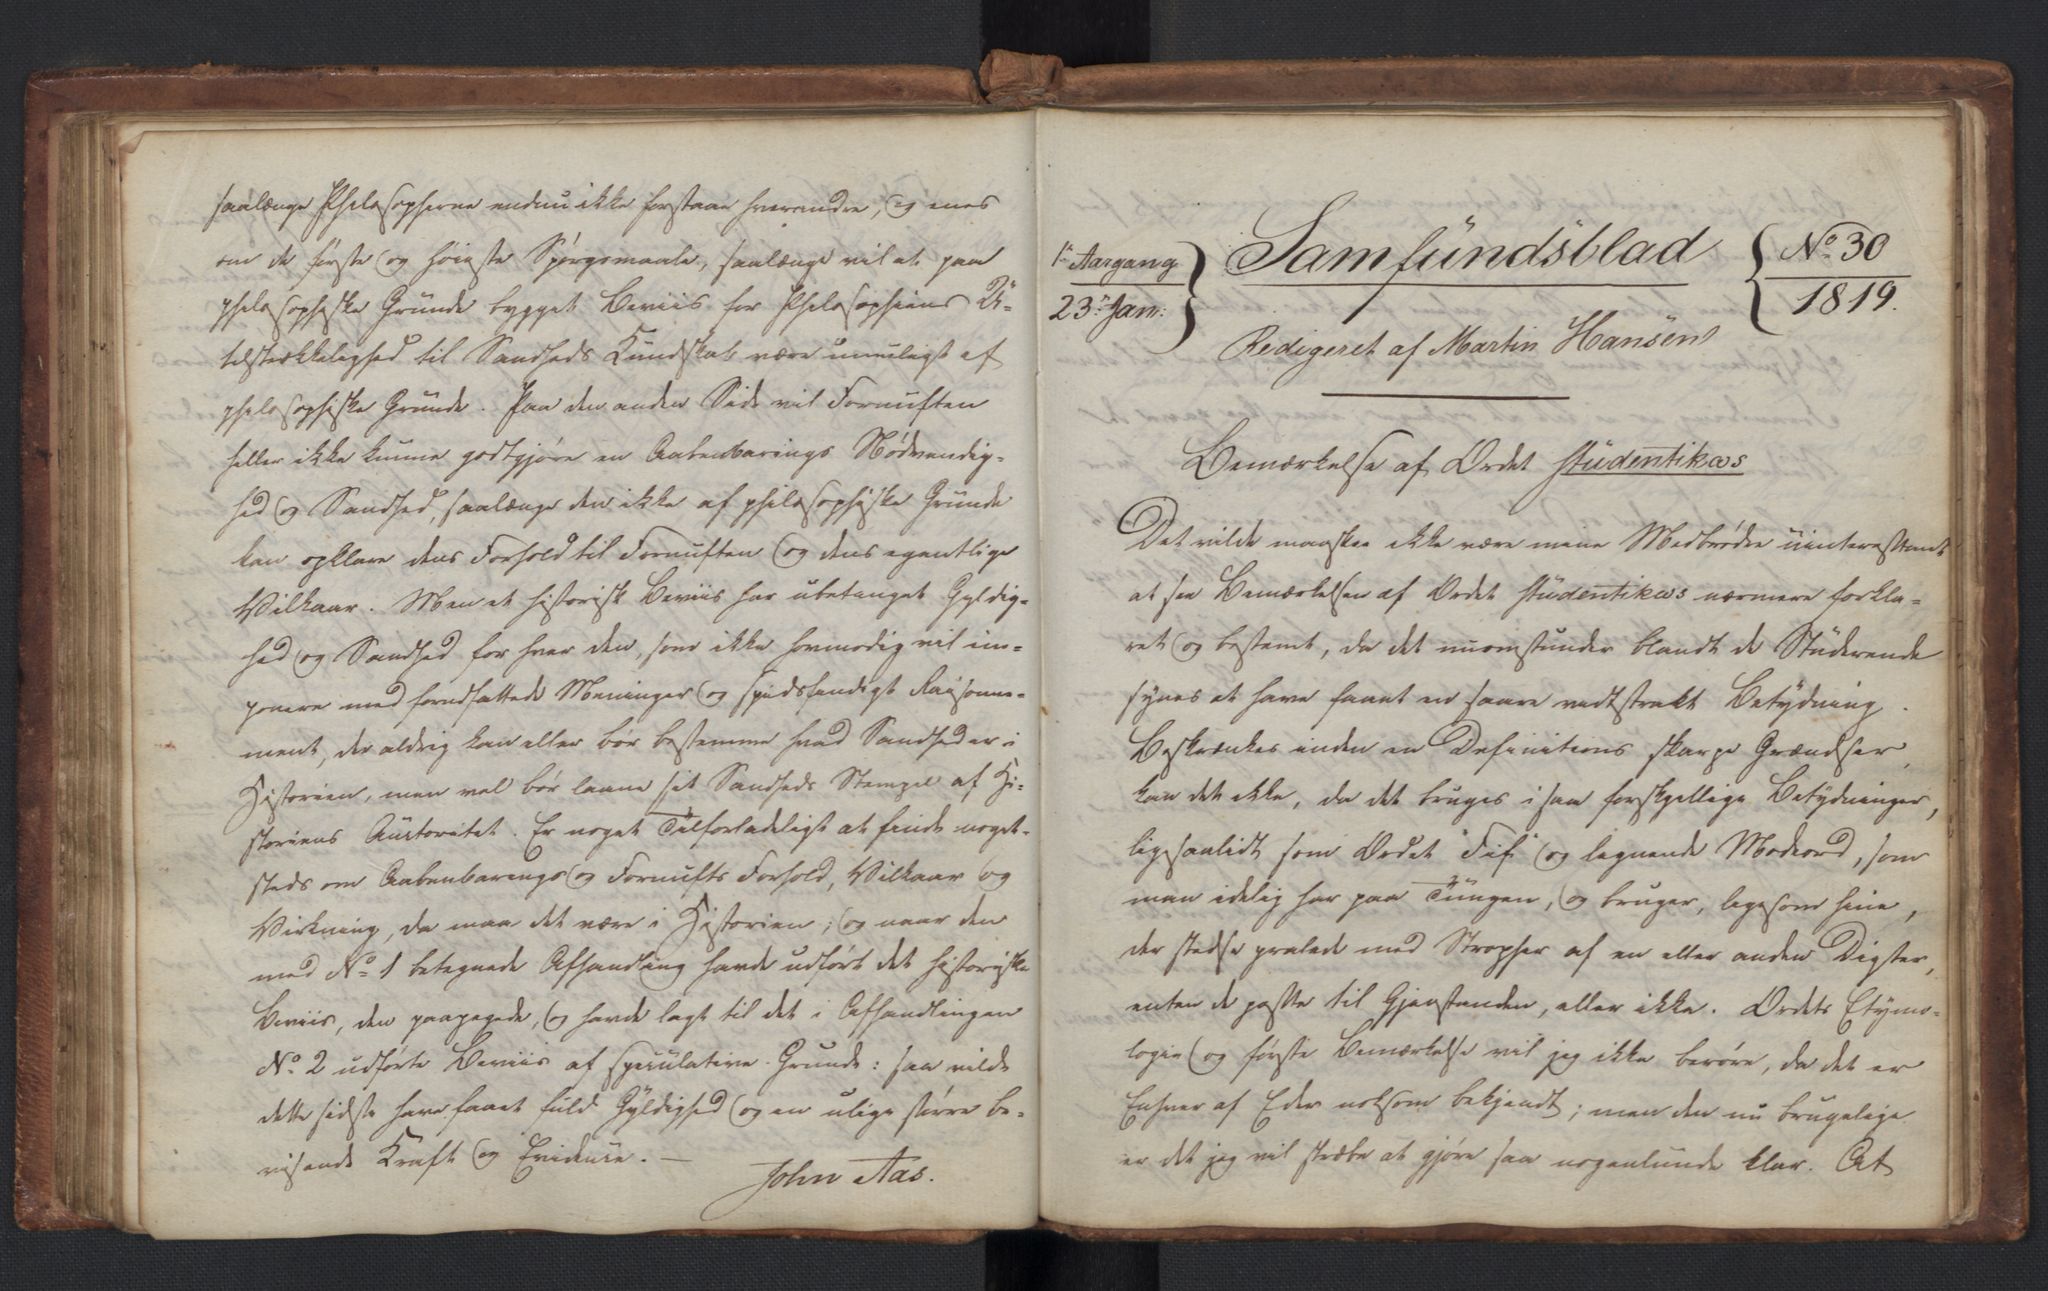 saalænge Philosopherne endnu ikke forstaae hverandre, og enes
om de første og høieste Spørgsmaale, saalænge vil et paa
philosophiske Grunde bygget Beviis for Philosophiens U-
tilstrækkelighed til Sandheds Kundskab være umuligt af
philosophiske Grunde. Paa den anden Side vil Fornuften
heller ikke kunne godtgjøre en Aabenbarings Nødvendig-
hed og Sandhed, saalænge den ikke af philosophiske Grunde
kan opklare dens Forhold til Fornuften og dens egentlige
Vilkaar. Men et historisk Beviis har ubetinget Gyldig-
hed og Sandhed for hver den, som ikke hovmodig vil im-
ponere med forudfattede Meninger og spidsfindigt Raisonne-
ment, der aldrig kan eller bør bestemme hvad Sandhed er i
Historien, men vel bør laane sit Sandheds Stempel af Hi-
storiens Autoritet. Er noget Tilforladeligt at finde noget-
steds om Aabenbarings og Fornufts Forhold, Vilkaar og
Virkning, da maa det være i Historien; og naar den
med No 1 betegnede Afhandling havde udført det historiske
Beviis, den paapegede, og havde lagt til det i Afhandlingen
No 2 udførte Beviis af speculative Grunde: saa vilde
dette sidste have faaet fuld Gyldighed og en ulige større be-
visende Kraft og Evidence. —
John Aas.
1ste Aargang
23de Jan:
Samfundsblad
No 30
1819.
Redigeret af Martin Hansen
Bemærkelse af Ordet studentikos
Det vilde maaskee ikke være mine Medbrødre uinteressant
at see Bemærkelsen af Ordet studentikos nærmere forkla-
ret og bestemt, da det nuomstunder blandt de Studerende
synes at have faaet en saare vidtstrakt Betydning.
Beskrænkes inden en Definitions skarpe Grændser,
kan det ikke, da det bruges i saa forskjellige Betydninger,
ligesaalidt som Ordet "Fif" og lignende Modeord, som
man idelig har paa Tungen, og bruger, ligesom hine,
der stedse pralede med Stropher af en eller anden Digter,
enten de passe til Gjenstanden, eller ikke. Ordets Etymo-
logie og første Bemærkelse vil jeg ikke berøre, da det er
Enhver af Eder noksom bekjendt; men den nu brugelige
er det jeg vil stræbe at gjøre saa nogenlunde klar. At